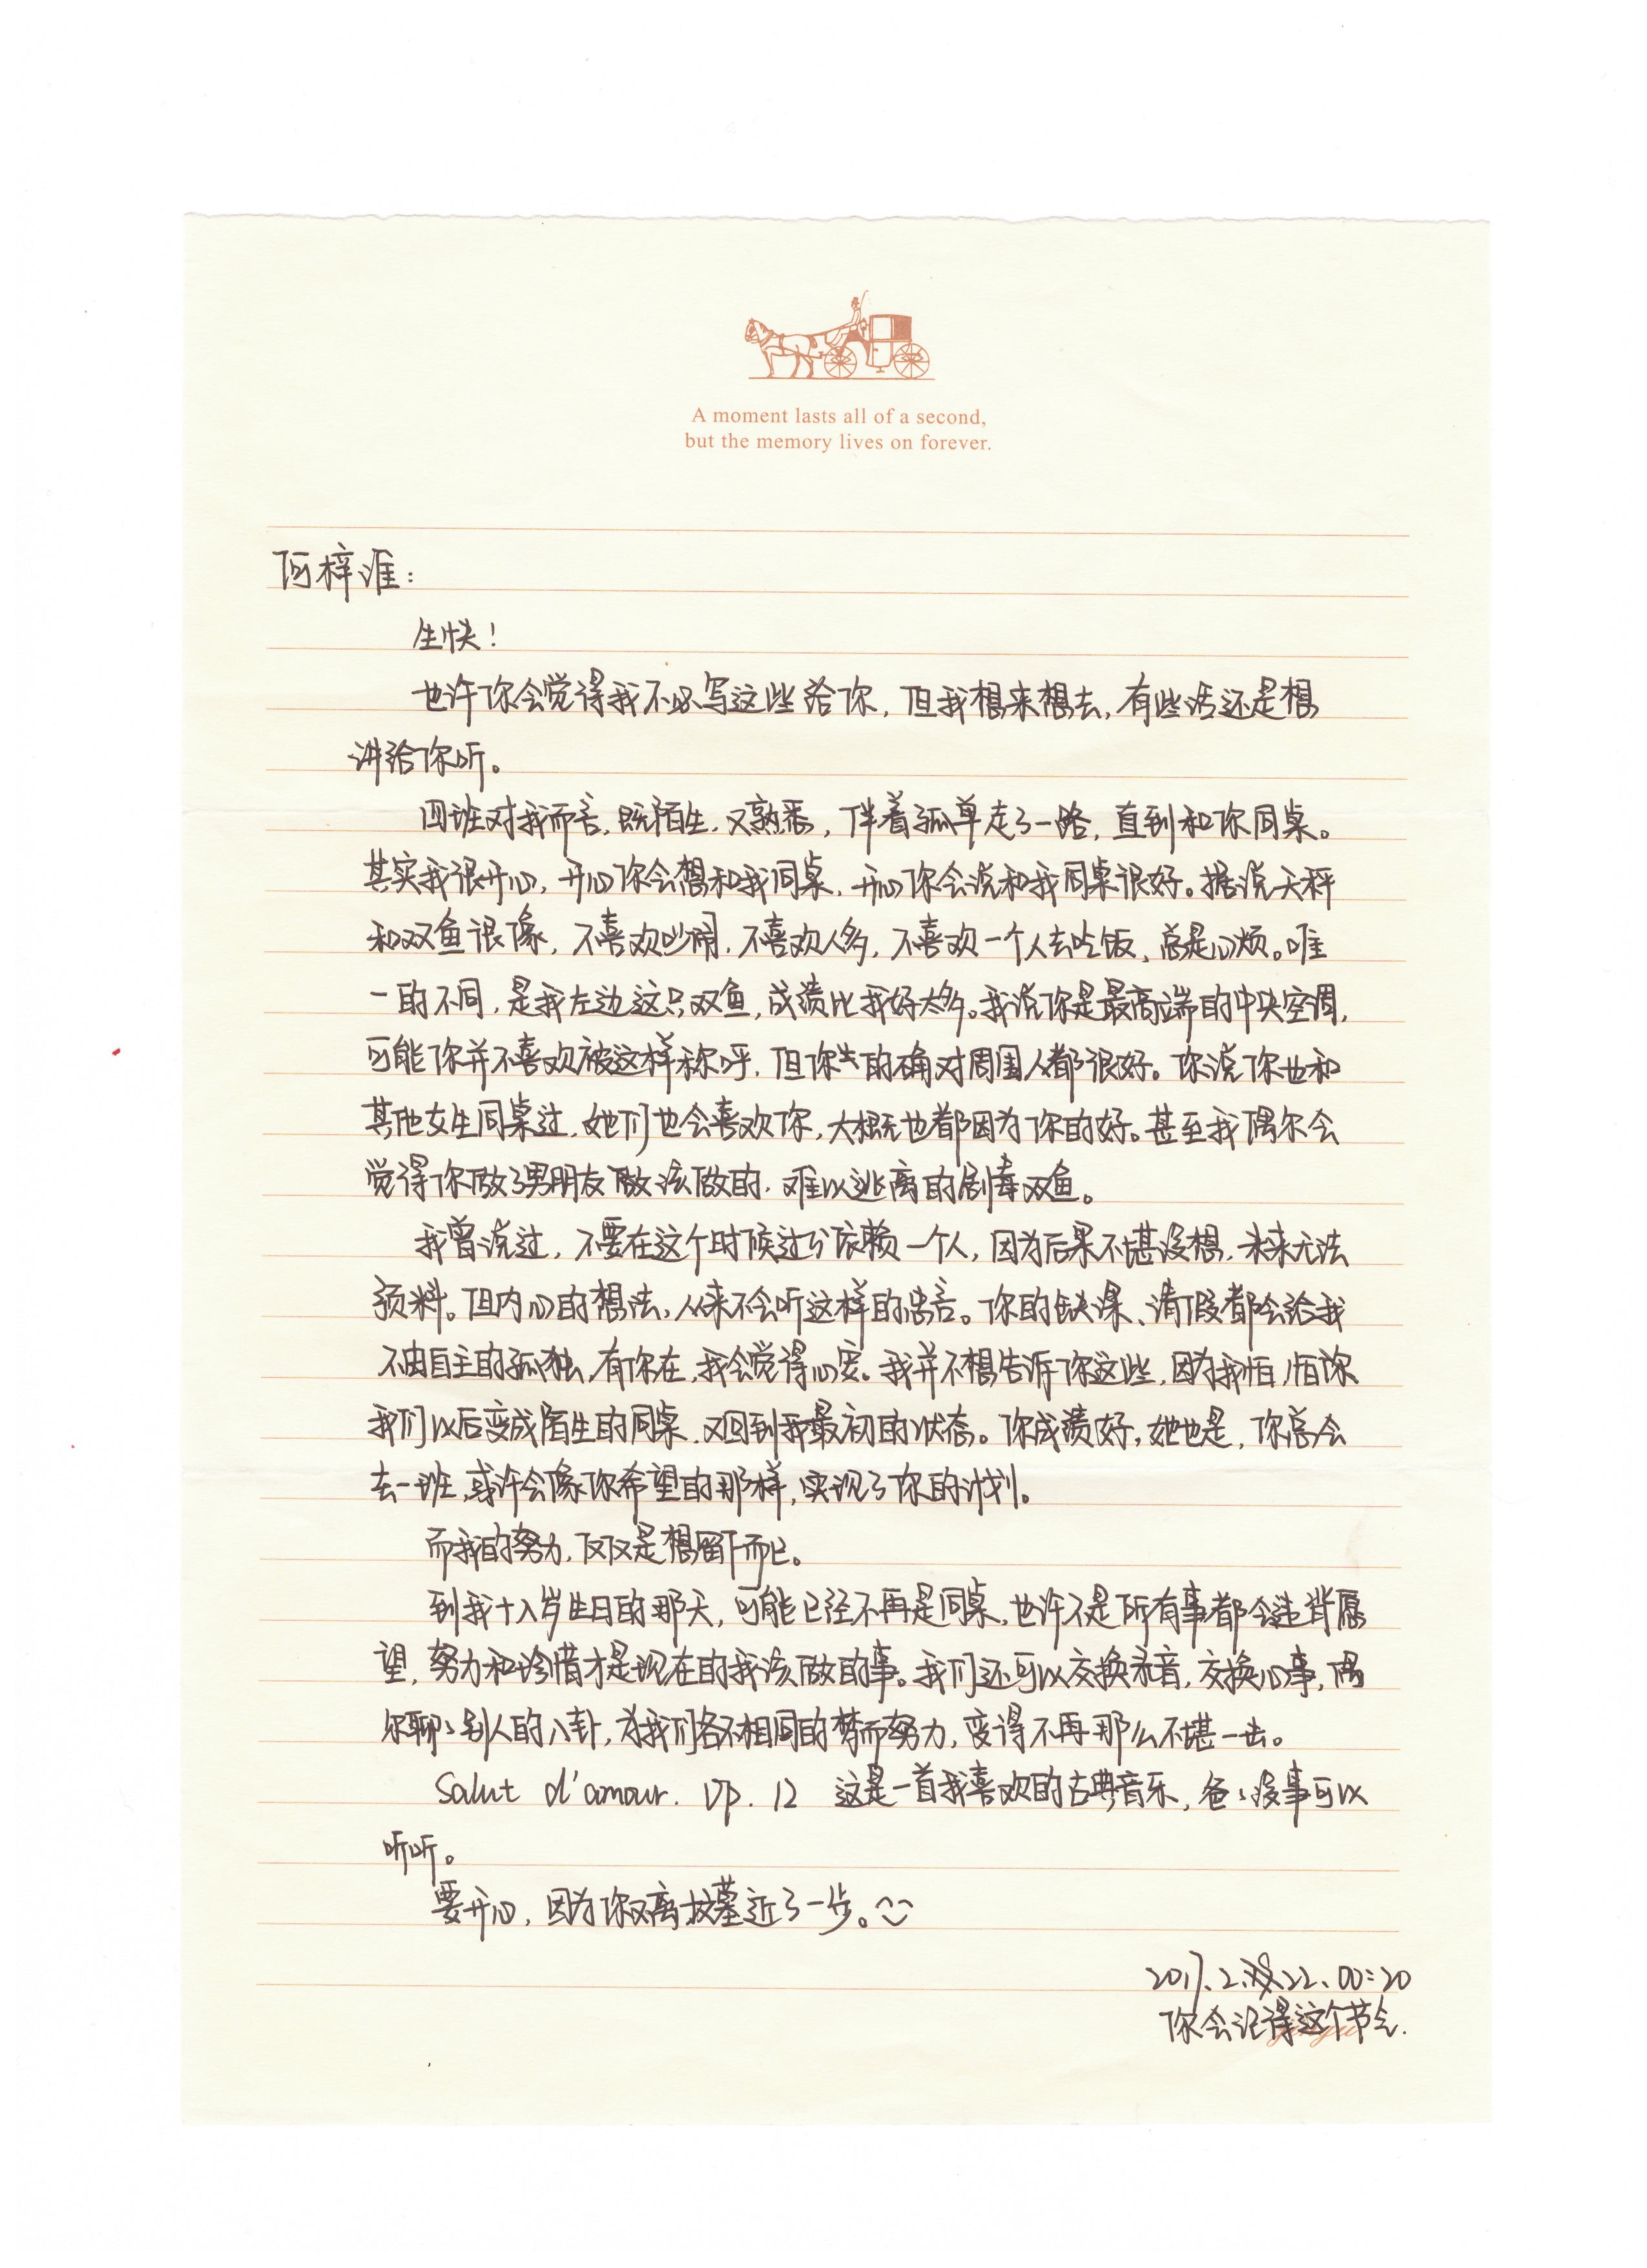 A moment lasts all of a second,
but the memory lives on forever.
何梓淮：
生快！
也许你会觉得我不必写这些给你，但我想来想去，有些话还是想
讲给你听。
四班对我而言，既陌生，又熟悉，伴着孤单走了一路，直到和你同桌。
其实我很开心，开心你会想和我同桌，开心你会说和我同桌很好。据说天秤
和双鱼很像，不喜欢吵闹，不喜欢人多，不喜欢一个人去吃饭，总是心烦。唯
一的不同，是我左边这只双鱼，成绩比我好太多。我说你是最高端的中央空调，
可能你并不喜欢被这样称呼，但你的确对周围人都很好。你说你也和
其他女生同桌过，她们也会喜欢你，大概也都因为你的好。甚至我偶尔会
觉得你做了男朋友做该做的，难以逃离的剧毒双鱼。
我曾说过，不要在这个时候过分依赖一个人，因为后果不堪设想，未来无法
预料。但内心的想法，从来不会听这样的忠言。你的缺课、请假都会给我
不由自主的孤独，有你在，我会觉得心安。我并不想告诉你这些，因为我怕，怕你
我们以后变成陌生的同桌，又回到我最初的状态。你成绩好，她也是，你总会
去一班，或许会像你希望的那样，实现了你的计划。
而我的努力，仅仅是想留下而已。
到我十八岁生日的那天，可能已经不再是同桌，也许不是所有事都会违背愿
望，努力和珍惜才是现在的我该做的事。我们还可以交换录音，交换心事，偶
尔聊聊别人的八卦，为我们各不相同的梦而努力，变得不再那么不堪一击。
Salut d'amour. Op. 12 这是一首我喜欢的古典音乐，爸爸没事可以
听听。
要开心，因为你又离坟墓近了一步。
2017.2.22.00:20
你会记得这个节么.